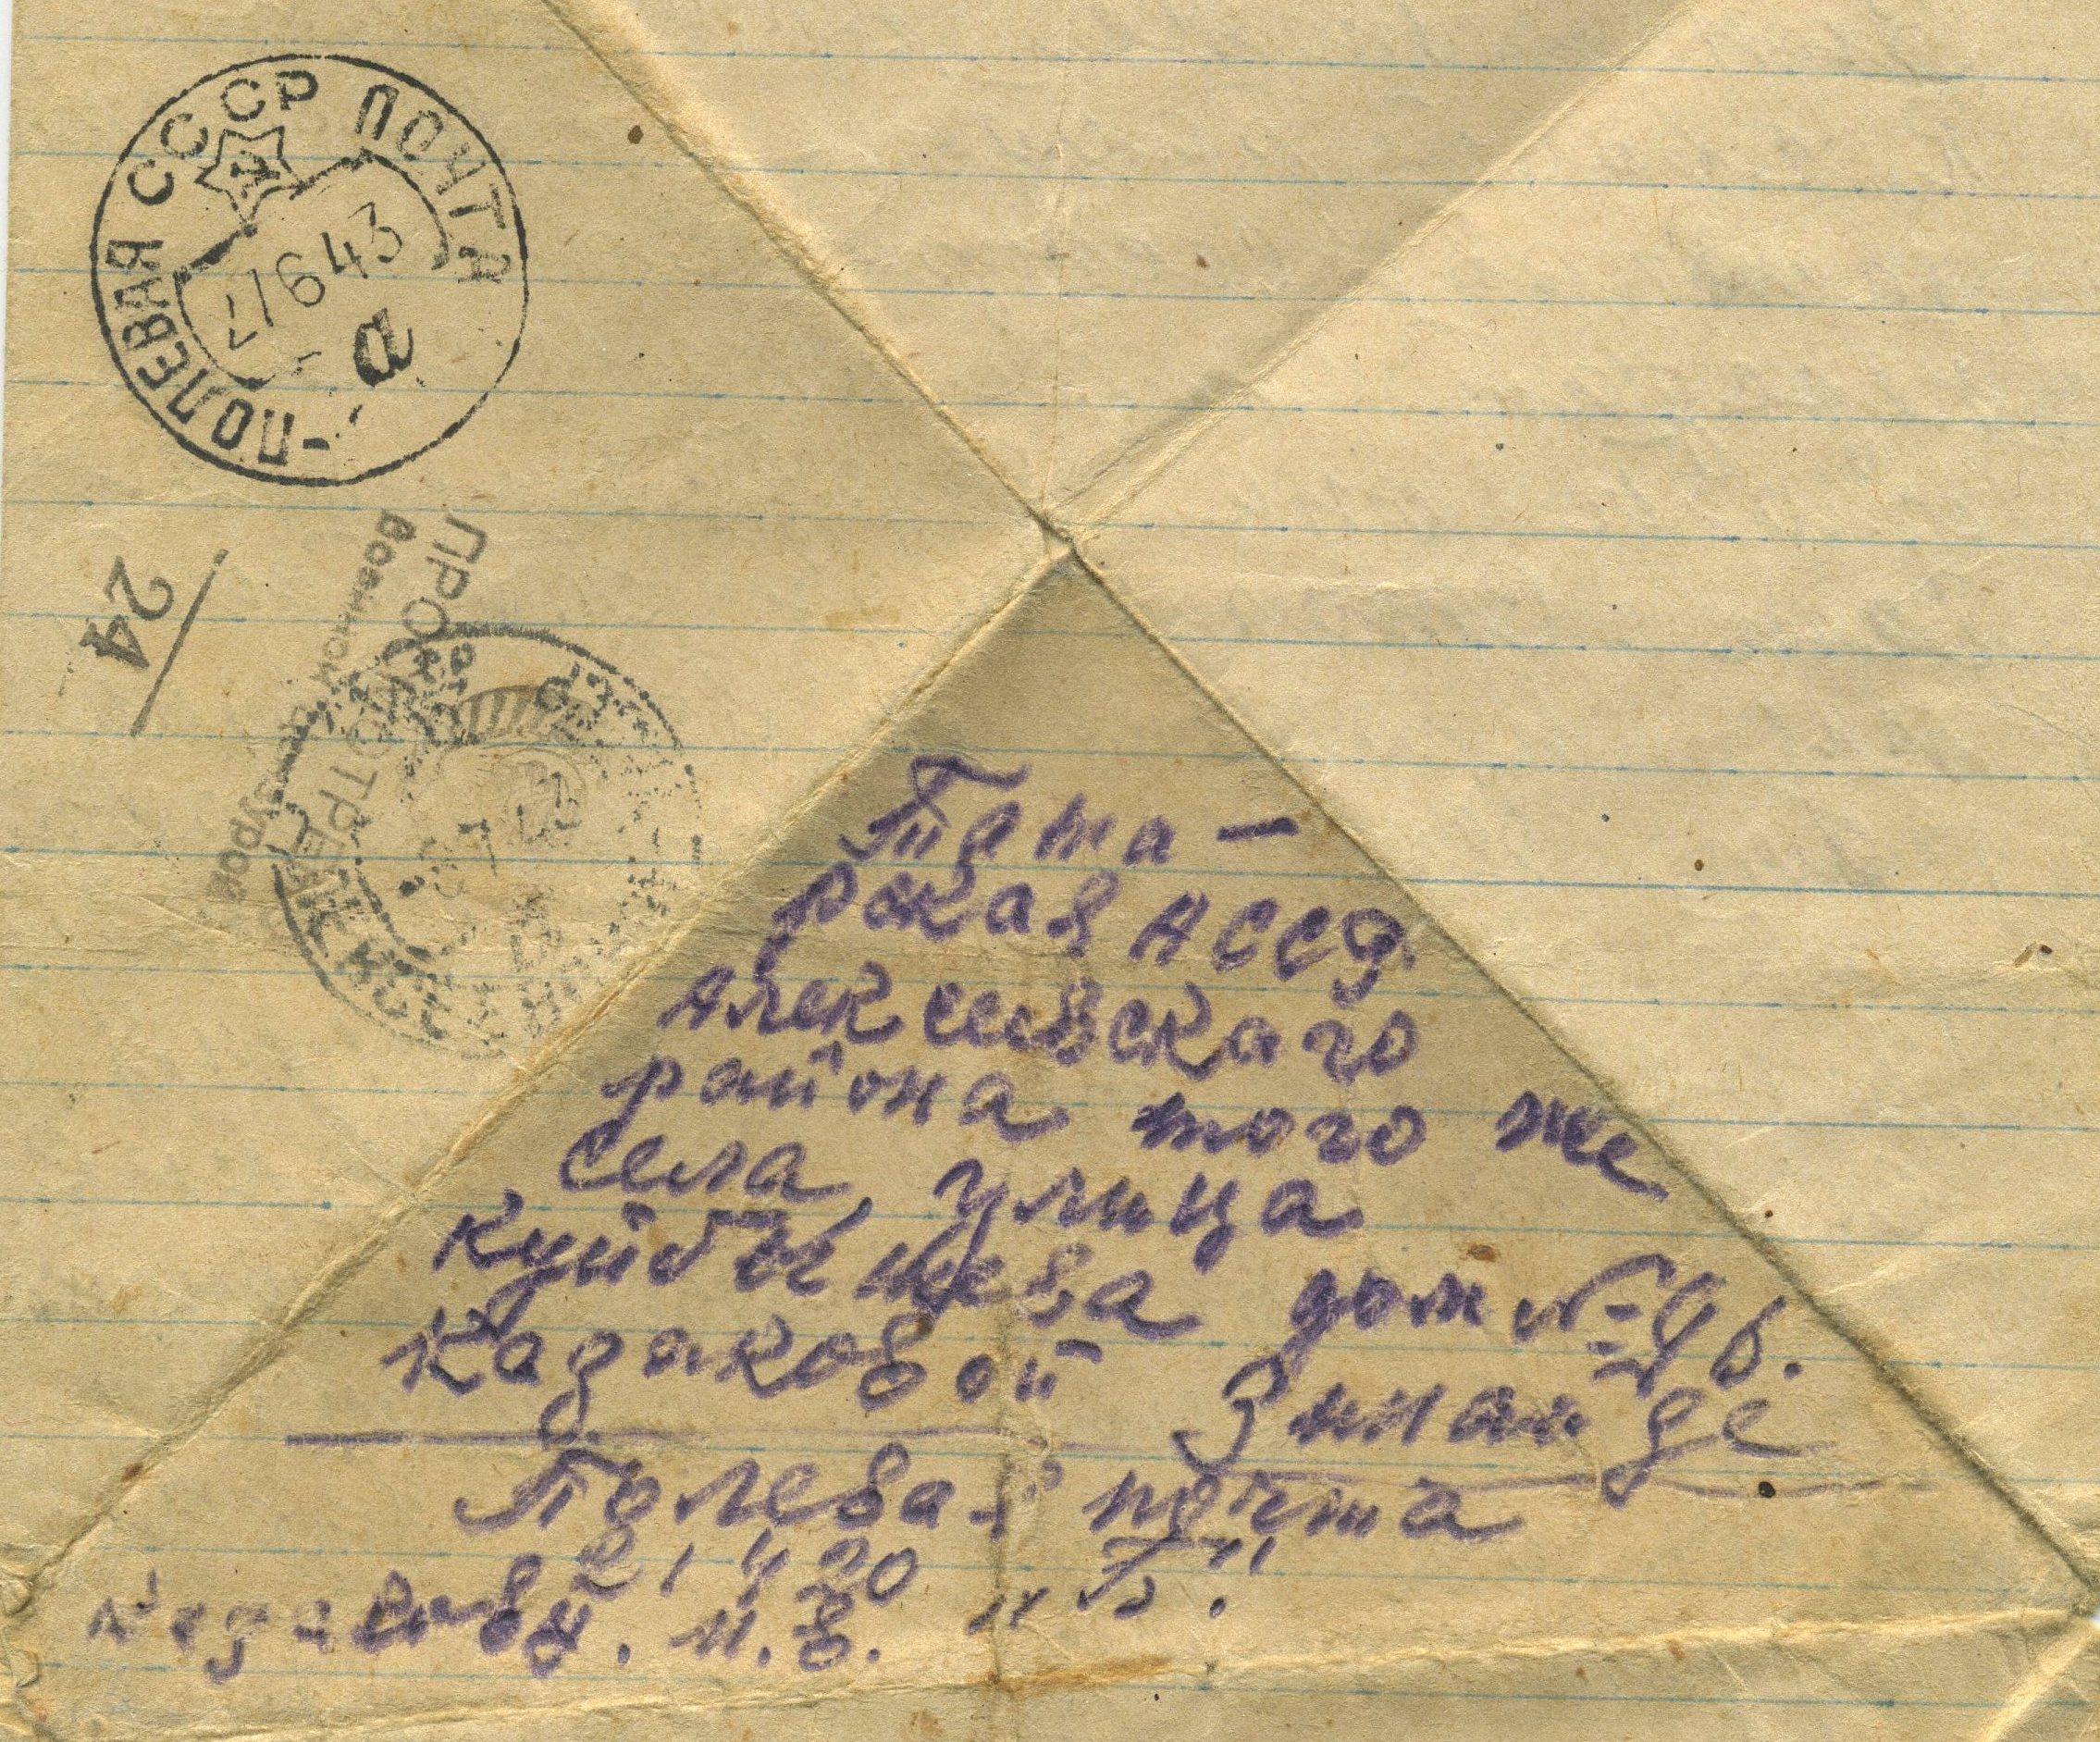 СССР ПОЧТА
-ПОЛЕВАЯ
27643
а
24
ПРОСМОТРЕНО
Военной Цензурой
Тата-
рская АССР
Алексеевскаго
района того же
села, улица
Куйбышева дом № 96.
Казаковой Зинаиде
Полевая почта
21420 "Б".
Казаковы. И. В.